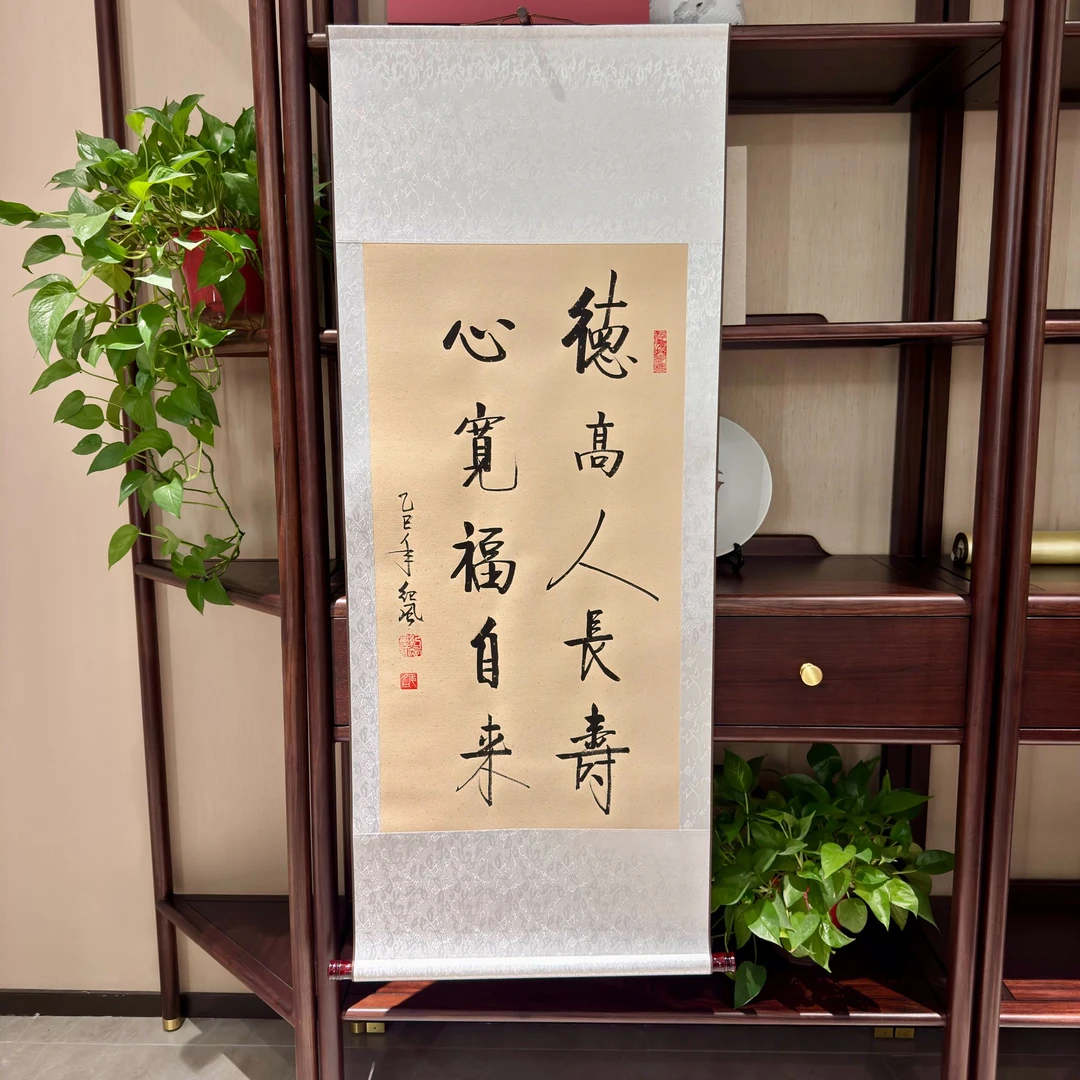 德高人長壽
心寬福自来
乙巳年紀風